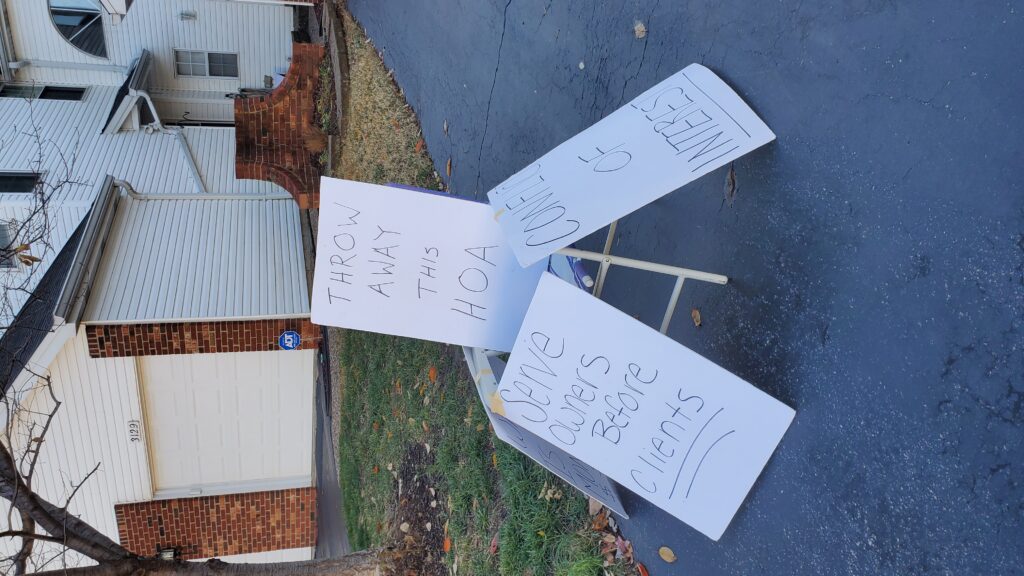 THROW
AWAY
THIS
HOA
CONFLICT
OF
INTEREST
Serve
Owners
Before
Clients
ADT
3129